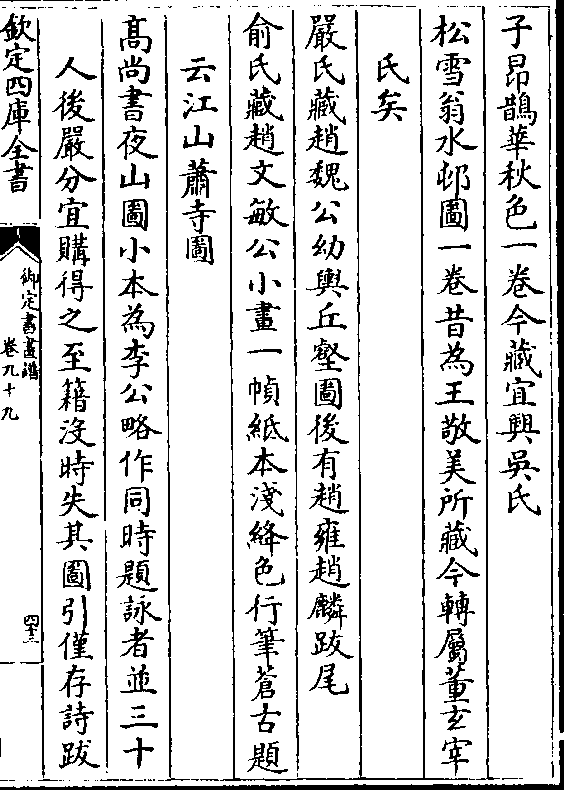 子昂鵲華秋色一卷今藏宜興吳氏
松雪翁水邨圖一卷昔為王敬美所藏今轉屬董玄宰
氏矣
嚴氏藏趙魏公幼輿丘壑圖後有趙雍趙麟跋尾
俞氏藏趙文敏公小畫一幀紙本淺絳色行筆蒼古題
云江山蕭寺圖
髙尚書夜山圖小本為李公略作同時題詠者並三十
人後嚴分宜購得之至籍沒時失其圖引僅存詩跋
欽定四庫全書
御定書畫譜
卷九十九
四十三